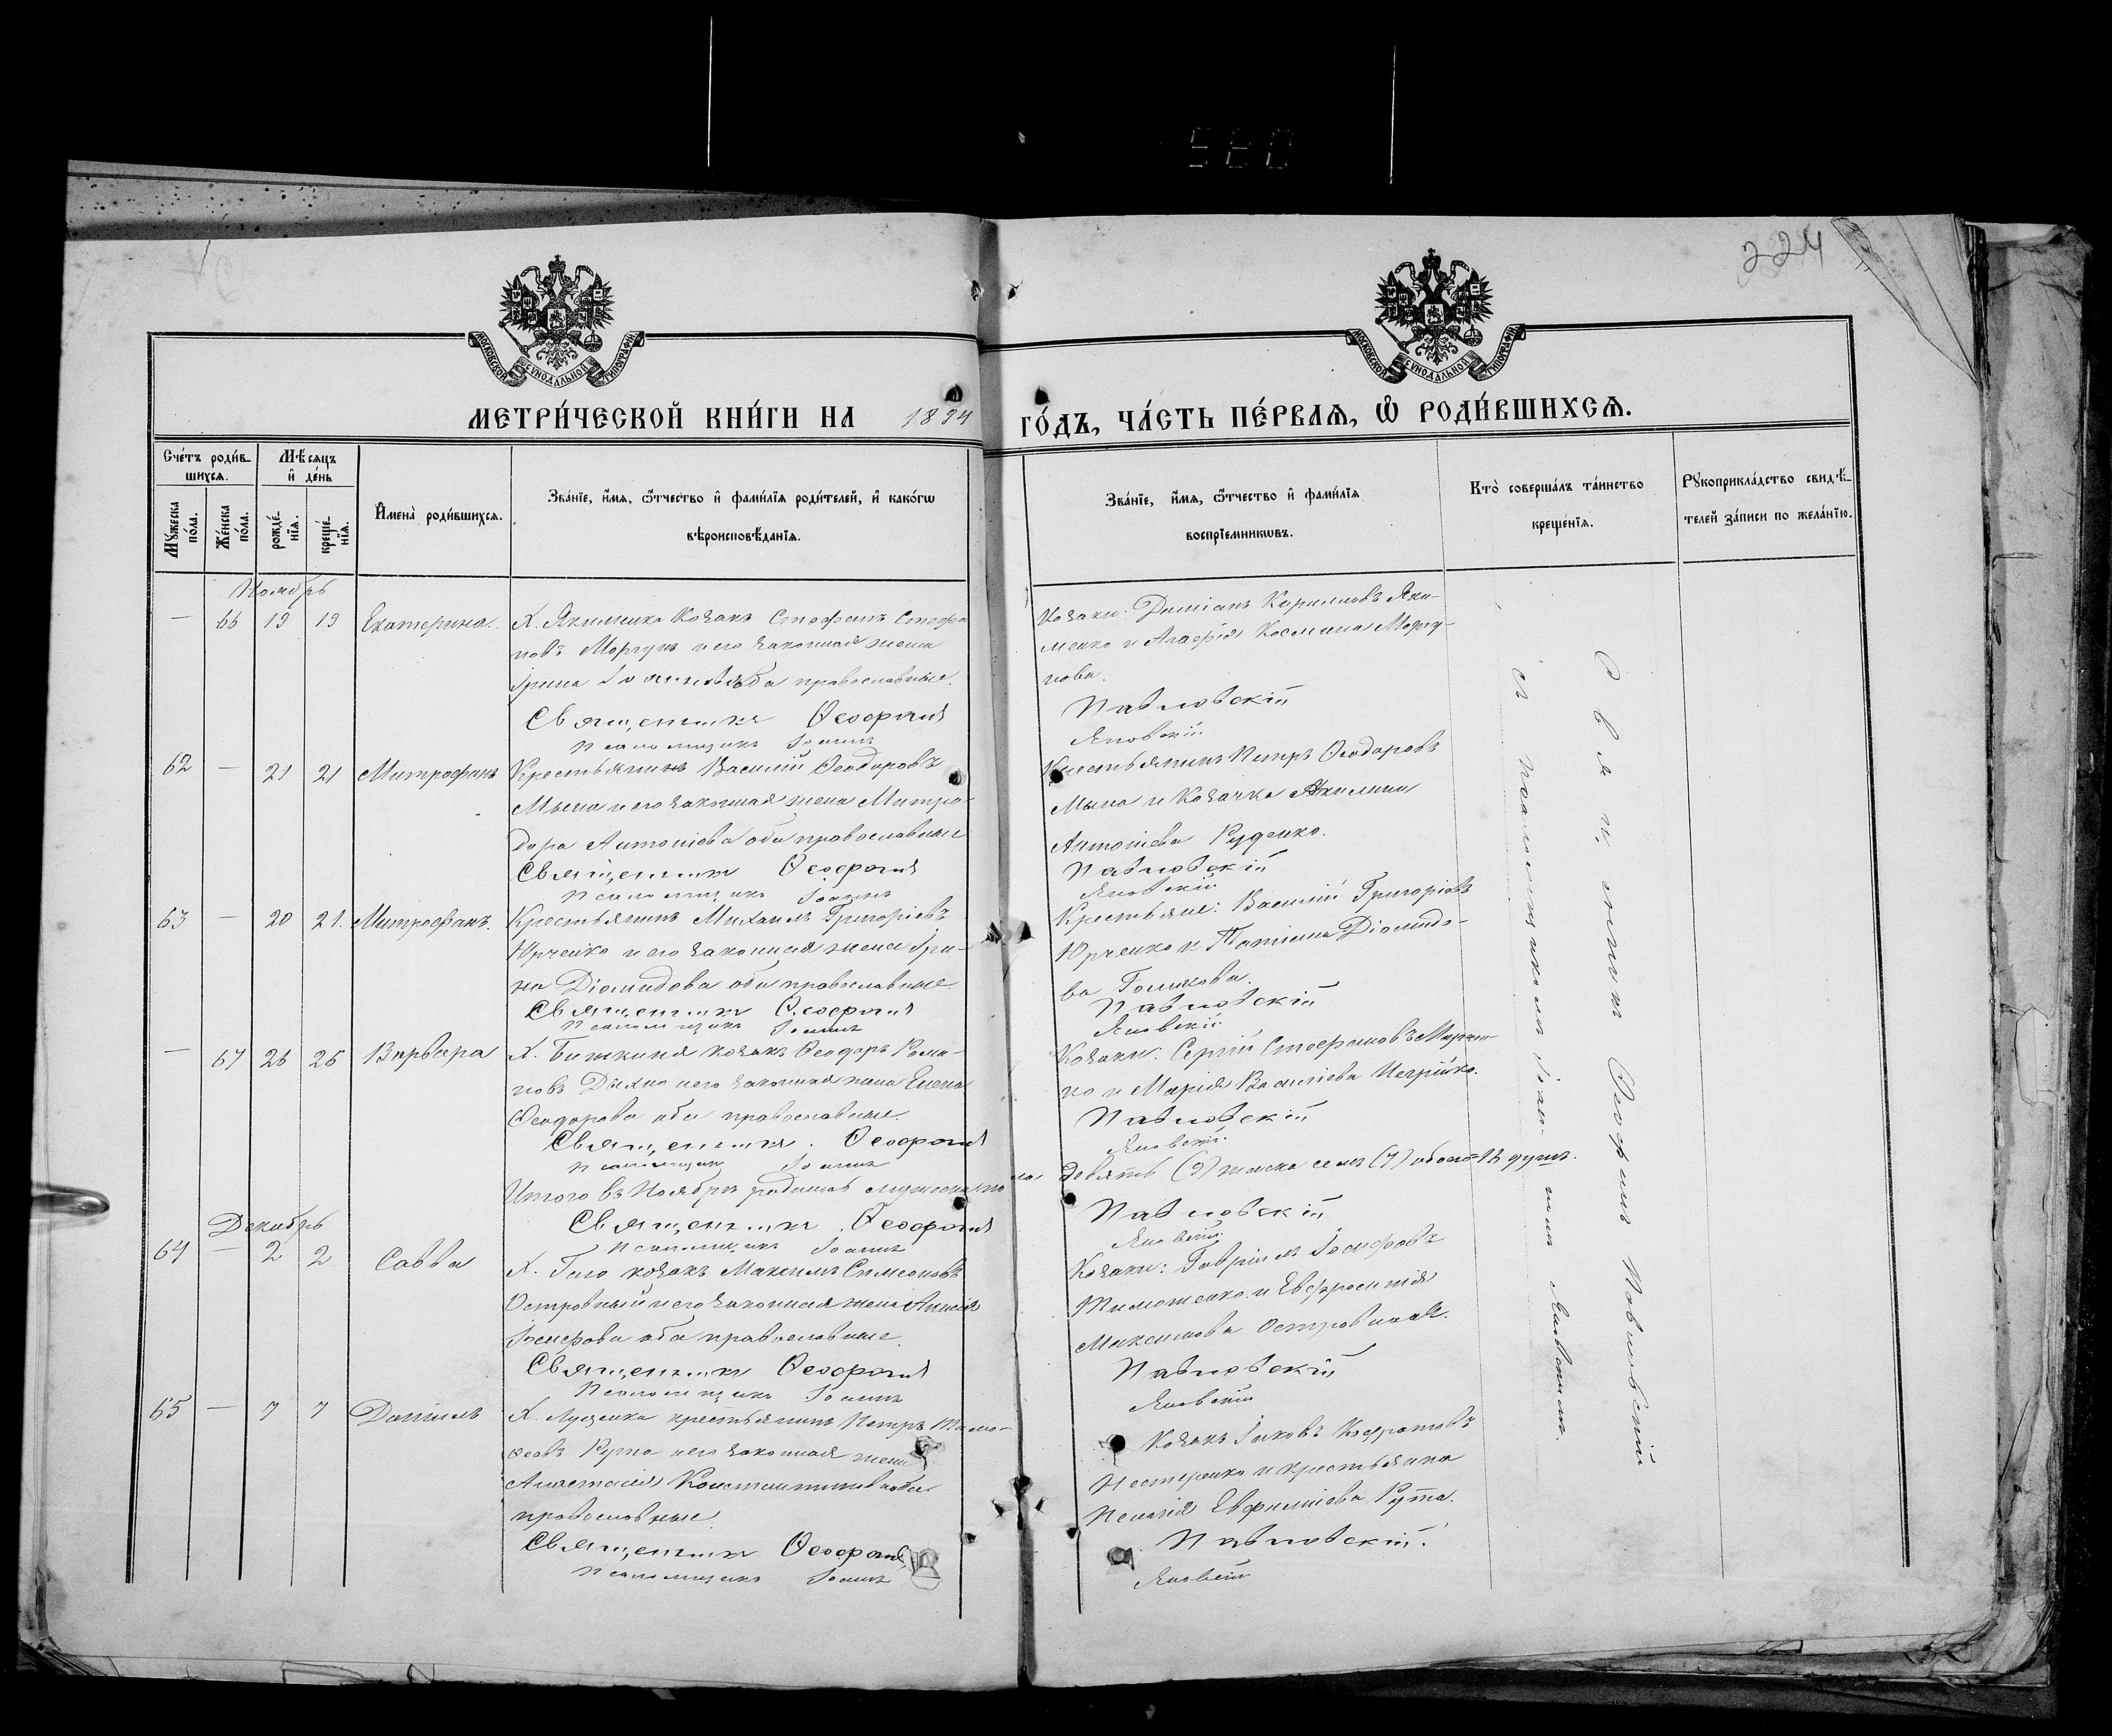 224
МОСКОВСКОЙ СУНОДАЛЬНОЙ ТИПОГРАФІИ
МОСКОВСКОЙ СУНОДАЛЬНОЙ ТИПОГРАФІИ
МЕТРИ́ЧЕСКОЙ КНИ́ГИ НА 1894
ГО́ДЪ, ЧА́СТЬ ПЕ́РВАѦ, Ѡ РОДИ́ВШИХСѦ.
Сче́тъ роди́вшихсѧ.
Мѣ́сѧцъ и҆ де́нь
Мꙋ́жеска по́ла.
Же́нска по́ла.
рожде́нїѧ.
креще́нїѧ.
И҆мена̀ роди́вшихсѧ.
Зва́нїе, и҆́мѧ, ѻ҆́тчество и҆ фами́лїѧ роди́телей, и҆ како́гѡ
вѣроисповѣ́данїѧ.
Зва́нїе, и҆́мѧ, ѻ҆́тчество и҆ фами́лїѧ
воспрїе́мникѡвъ.
Кто̀ соверша́лъ та́инство
креще́нїѧ.
Рꙋкоприкла́дство свидѣ́-
телей за́писи по жела́нїю.
Ноябрь
— 66 19 19 Екатерина.
Х. Якименка Козакъ Стефанъ Стефа
новъ Моргунъ и его законная жена
Ірина оба православные.
Священникъ Ѳеофанъ
Псаломщикъ Іоаннъ
Козаки: Даміанъ Кирилловъ Яки-
менко и Агафія Космина Моргу-
нова.
Павловскій
Яновскій
62 — 21 21 Митрофанъ
Крестьянинъ Василій Ѳеодоровъ
Мына и его законная жена Митро-
дора Антоніева оба православные
Священникъ Ѳеофанъ
Псаломщикъ Іоаннъ
Крестьянинъ Петръ Ѳеодоровъ
Мына и Козачка Акилина
Антоніева Руденко.
Павловскій
Яновскій
63 — 20 21. Митрофанъ.
Крестьянинъ Михаилъ Григоріевъ
Юрченко и его законная жена Іри-
на Діомидова оба православные
Священникъ Ѳеофанъ
Псаломщикъ Іоаннъ
Крестьяне: Василій Григоріевъ
Юрченко и Татіана Діомидо-
ва
Павловскій
Яновскій
— 67 26 26 Варвара
Х. козакъ Ѳеодоръ Рома-
новъ и его законная жена Елена
Ѳеодорова оба православные
Священникъ Ѳеофанъ
Псаломщикъ Іоаннъ
Козаки: Сергій Стефановъ
и Марія Василіева
Павловскій
Яновскій
Итого въ Ноябрѣ родилось мужеска пола девять (9) женска семь (7) обоего 16 душъ.
Священникъ Ѳеофанъ
Псаломщикъ Іоаннъ
Павловскій
Яновскій
Декабрь
64 — 2 2 Савва
Х. козакъ Максимъ Симеоновъ
Островный и его законная жена Анисія
Іосифова оба православные
Священникъ Ѳеофанъ
Псаломщикъ Іоаннъ
Козаки: Гавріилъ Іосифовъ
Тимошенко и Евфросинія
Максимова Островная.
Павловскій
Яновскій
65 — 7 7 Даніилъ
Х. Луценка крестьянинъ Петръ Тимо-
ѳеевъ Рута и его законная жена
Анастасія Константинова оба
православные
Священникъ Ѳеофанъ
Псаломщикъ Іоаннъ
Козакъ Іаковъ
Нестеренко и крестьянка
Пелагія Евфиміева Рута.
Павловскій
Яновскій
Священникъ Павловскій
съ псаломщикомъ